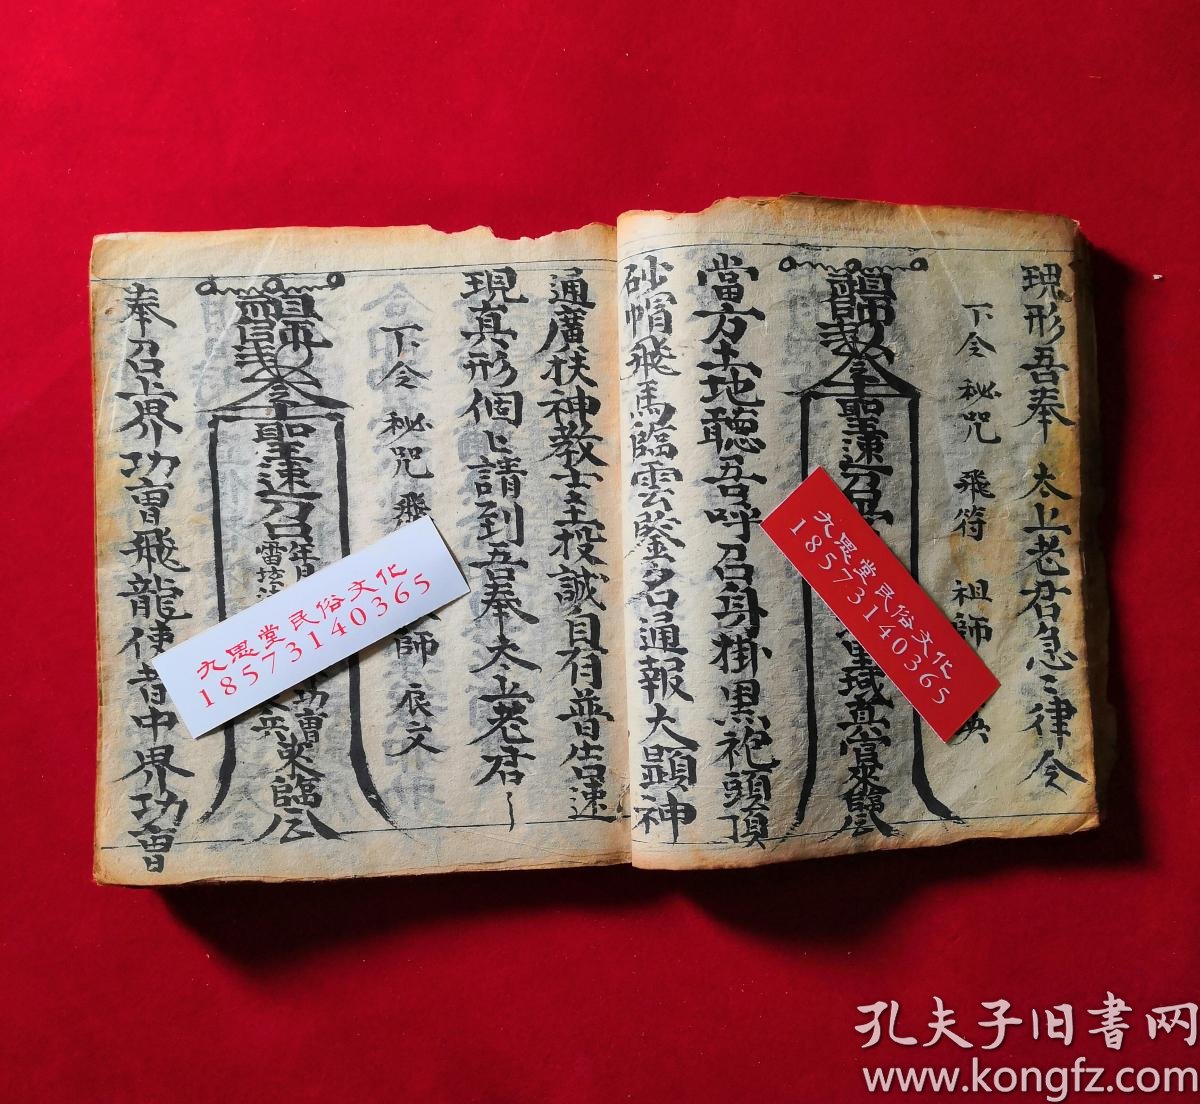 現形吾奉 太上老君急〻律令
下令 秘咒 飛符 祖師
祖師
令
聖速召
真當來臨
當方土地聽吾呼召身掛黑袍頭頂
砂帽飛馬臨雲鑒名通報大顯神
通廣扶神教主投誠自有普告速
現真形個〻請到吾奉太上老君〻
下令 秘咒 飛 師 辰文
祖師
令
聖速召
年月
雷
功曹
兵
來臨
奉召上界功曹飛龍使者中界功曹
九思堂民俗文化
18573140365
九思堂民俗文化
18573140365
孔夫子旧書网
www.kongfz.com